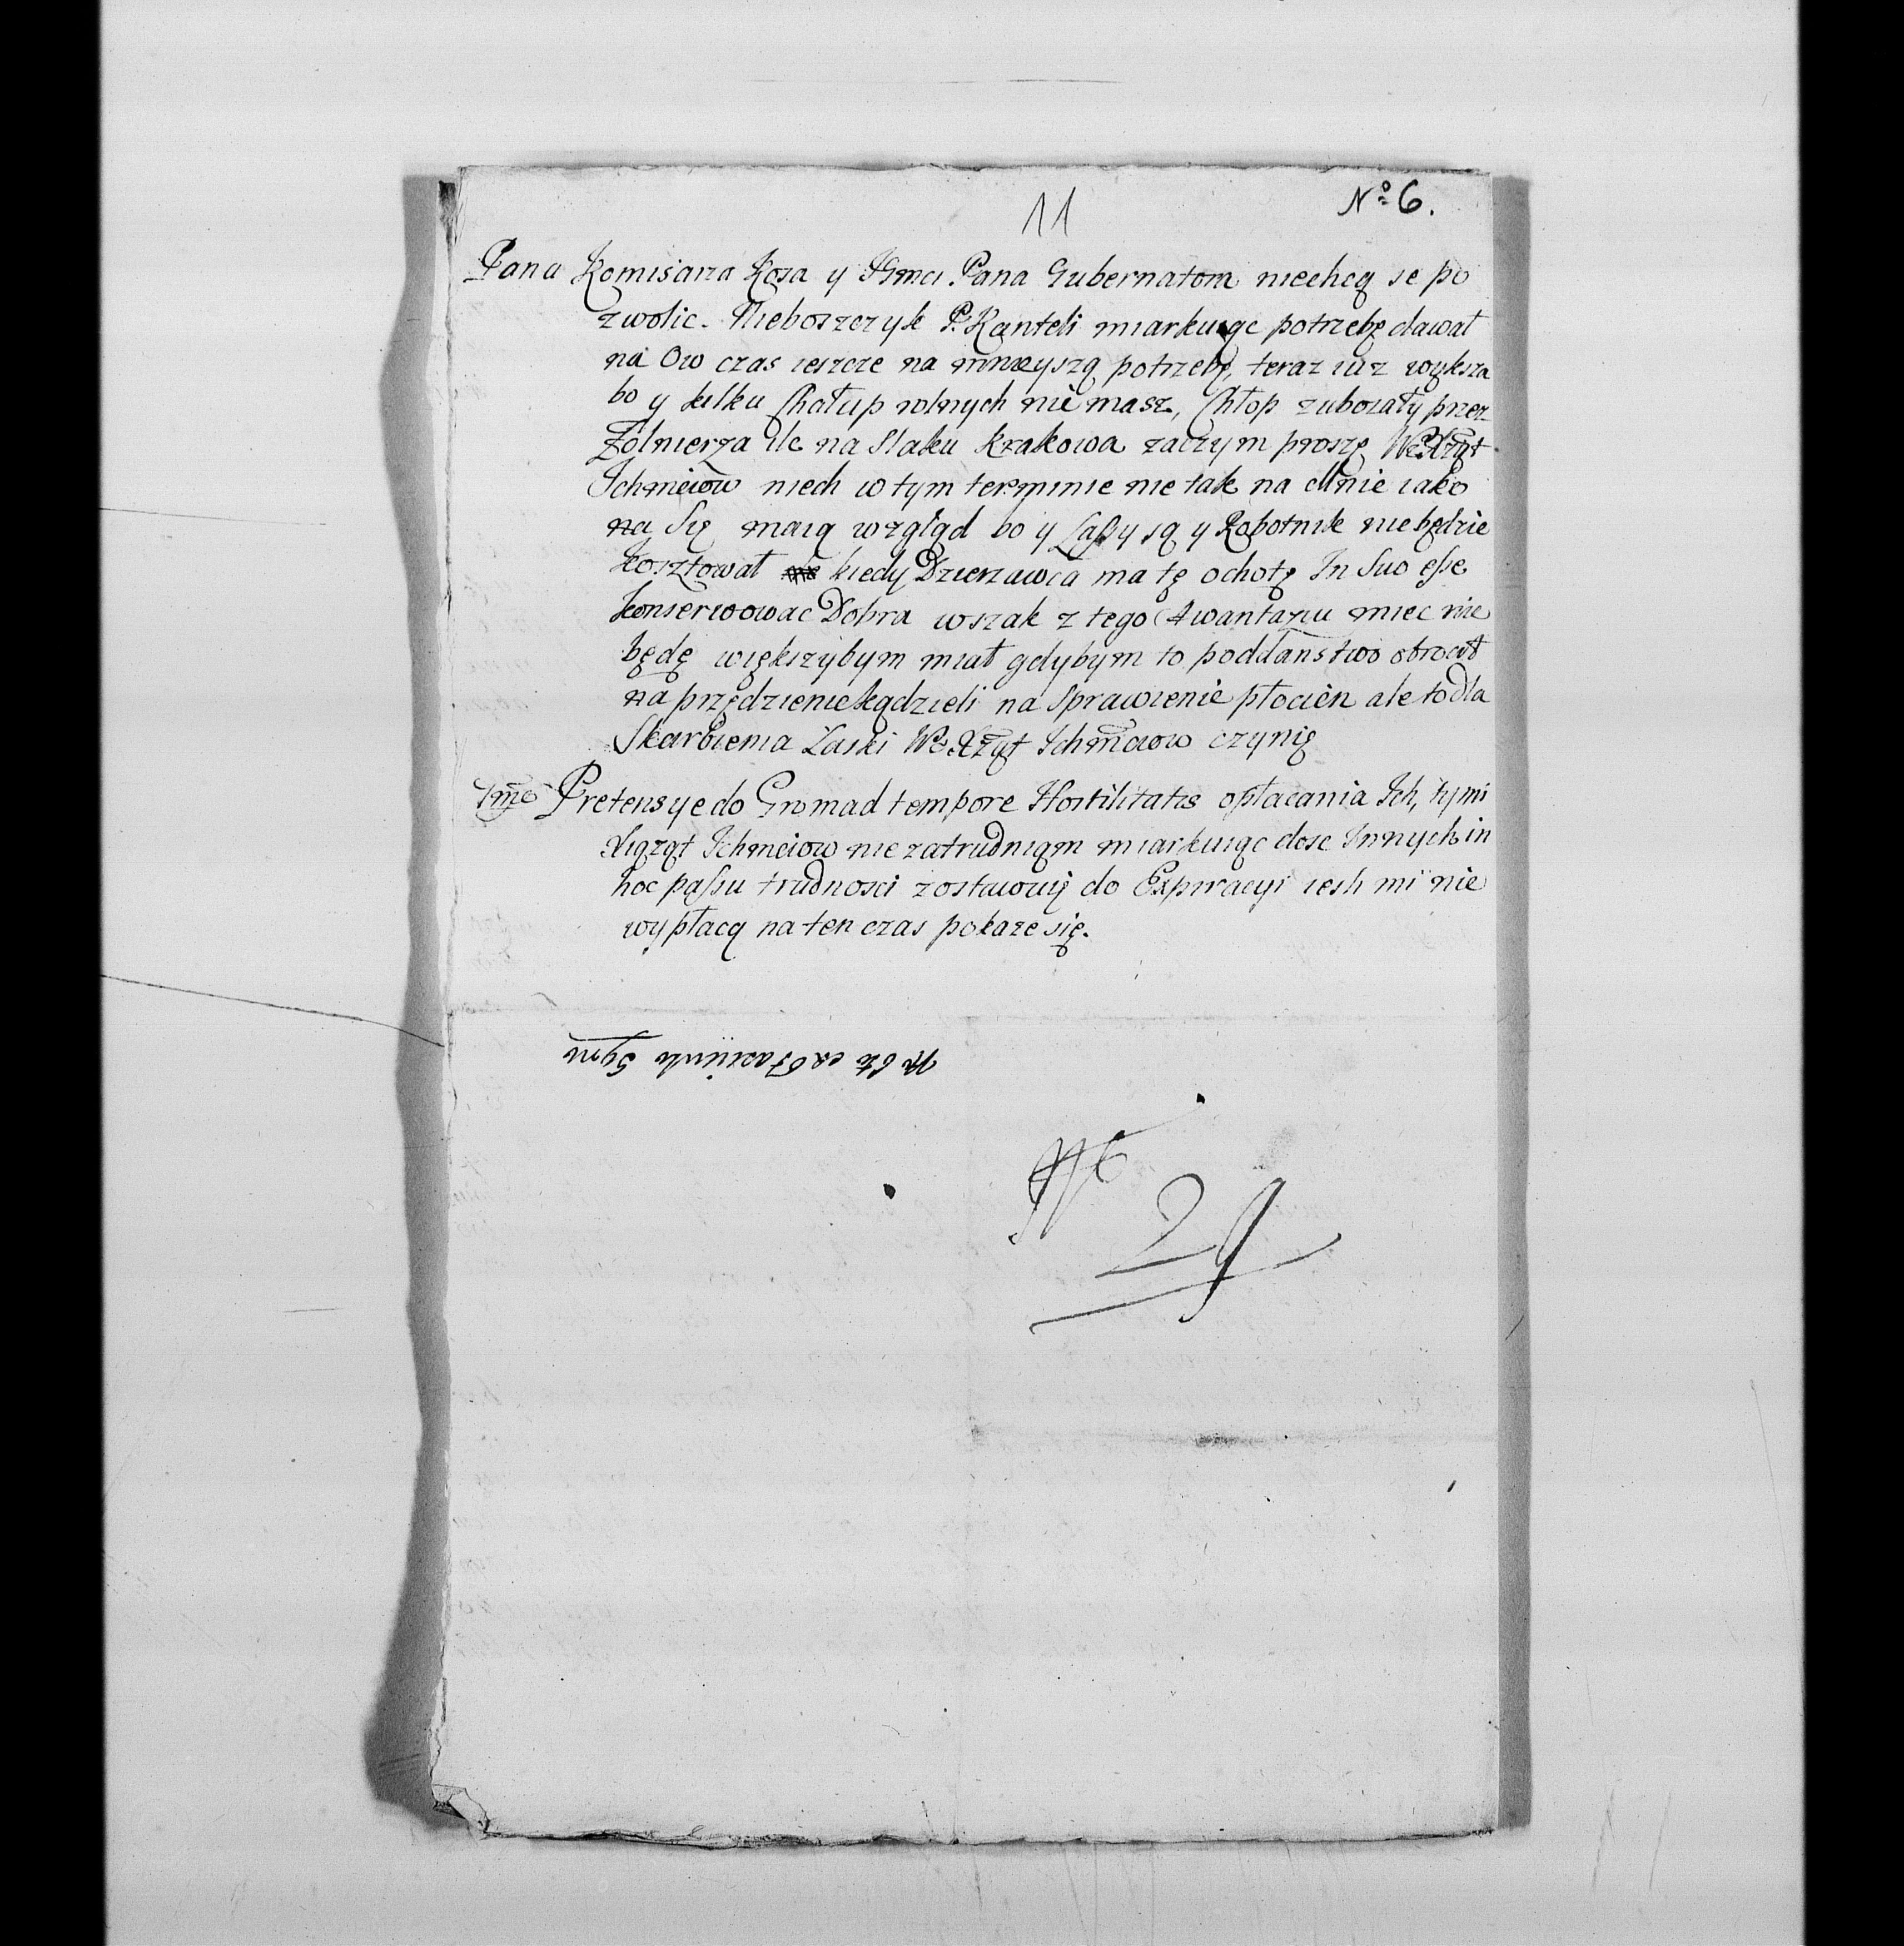 11
Nº 6.
Pana Komisarza Kosa y JGmci Pana Gubernatora niechcą se po
zwolic. Nieboszczyk P. Kanteli miarkuiąc potrzebę dawał
na Ow czas ieszcze na mnieyszą potrzebę, teraz iuz większa
bo y kilku Chałup rolnych nie masz, Chłop zubozały przez
Zołnierza ile na Slaku Krakowa zaczym proszę WXżąt
Ichmciow niech w tym terminie nie tak na Mnie iako
na Się maią wzgląd bo y Lassy są y Robotnik nie będzie
kosztował kiedy Dzierzawca ma tę ochotę In Suo esse
konserwowac Dobra wszak z tego Awantazu miec nie
będę większybym miał gdybym to poddanstwo obrocił
na przędzenie kądzieli na sprawienie płocien ale to dla
Skarbienia Łaski WXżąt Ichmciow czynię
7me Pretensye do Gromad tempore Hostilitatis opłacania Ich, tymi
Xiąząt Ichmciow nie zatrudniam miarkuiąc dosc Innych in
hoc passu trudnosci zostawuię do Expiracyi iesli mi nie
wypłacą na ten czas pokaze się.
29